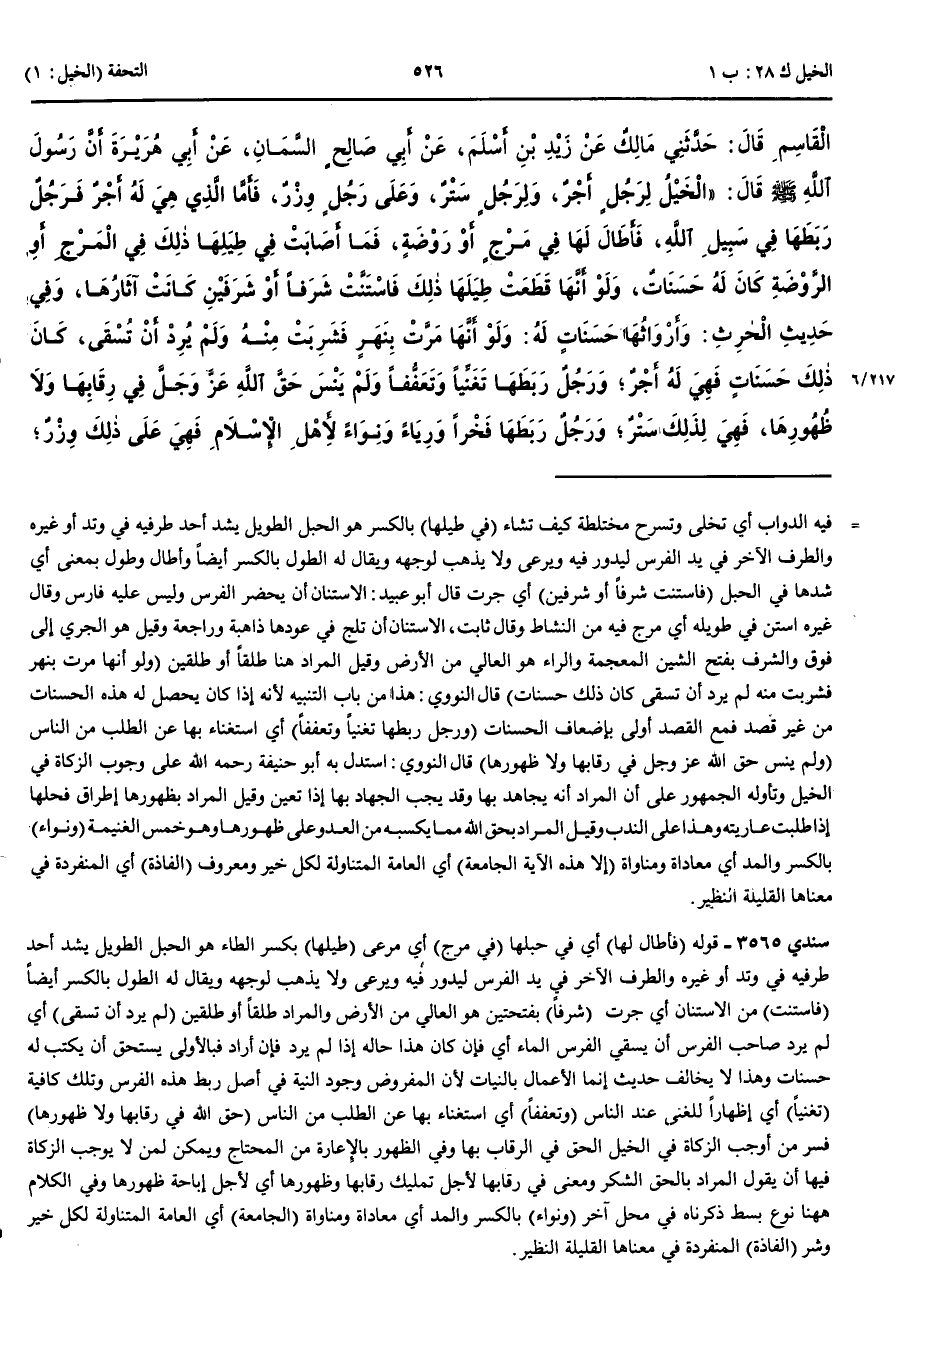 الخيل ك ٢٨: ب ١ ٥٢٦ التحفة (الخيل: ١)
الْقَاسِمِ قَالَ: حَدَّثَنِي مَالِكٌ عَنْ زَيْدِ بْنِ أَسْلَمَ، عَنْ أَبِي صَالِحٍ السَّمَانِ، عَنْ أَبِي هُرَيْرَةَ أَنَّ رَسُولَ
اللَّهِ ﷺ قَالَ: «الْخَيْلُ لِرَجُلٍ أَجْرٌ، وَلِرَجُلٍ سَتْرٌ، وَعَلَى رَجُلٍ وِزْرٌ، فَأَمَّا الَّذِي هِيَ لَهُ أَجْرٌ فَرَجُلٌ
رَبَطَهَا فِي سَبِيلِ اللَّهِ، فَأَطَالَ لَهَا فِي مَرْجٍ أَوْ رَوْضَةٍ، فَمَا أَصَابَتْ فِي طِيَلِهَا ذَلِكَ فِي الْمَرْجِ أَوِ
الرَّوْضَةِ كَانَ لَهُ حَسَنَاتٌ، وَلَوْ أَنَّهَا قَطَعَتْ طِيَلَهَا ذَلِكَ فَاسْتَنَّتْ شَرَفاً أَوْ شَرَفَيْنِ كَانَتْ آثَارُهَا، وَفِي
حَدِيثِ الْحٰرِثِ: وَأَرْوَاثُهَا حَسَنَاتٍ لَهُ: وَلَوْ أَنَّهَا مَرَّتْ بِنَهَرٍ فَشَرِبَتْ مِنْهُ وَلَمْ يُرِدْ أَنْ تُسْقَى، كَانَ
ذَلِكَ حَسَنَاتٍ فَهِيَ لَهُ أَجْرٌ؛ وَرَجُلٌ رَبَطَهَا تَغَنِّياً وَتَعَفُّفاً وَلَمْ يَنْسَ حَقَّ اللَّهِ عَزَّ وَجَلَّ فِي رِقَابِهَا وَلَا
٦/٢١٧
ظُهُورِهَا، فَهِيَ لِذَلِكَ سَتْرٌ؛ وَرَجُلٌ رَبَطَهَا فَخْراً وَرِيَاءً وَنِوَاءً لِأَهْلِ الْإِسْلَامِ فَهِيَ عَلَى ذَلِكَ وِزْرٌ؛
= فيه الدواب أي تخلى وتسرح مختلطة كيف تشاء (في طيلها) بالكسر هو الحبل الطويل يشد أحد طرفيه في وتد أو غيره
والطرف الآخر في يد الفرس ليدور فيه ويرعى ولا يذهب لوجهه ويقال له الطول بالكسر أيضاً وأطال وطول بمعنى أي
شدها في الحبل (فاستنت شرفاً أو شرفين) أي جرت قال أبو عبيد: الاستنان أن يحضر الفرس وليس عليه فارس وقال
غيره استن في طويله أي مرج فيه من النشاط وقال ثابت، الاستنان أن تلج في عودها ذاهبة وراجعة وقيل هو الجري إلى
فوق والشرف بفتح الشين المعجمة والراء هو العالي من الأرض وقيل المراد هنا طلقاً أو طلقين (ولو أنها مرت بنهر
فشربت منه لم يرد أن تسقى كان ذلك حسنات) قال النووي: هذا من باب التنبيه لأنه إذا كان يحصل له هذه الحسنات
من غير قصد فمع القصد أولى بإضعاف الحسنات (ورجل ربطها تغنياً وتعففاً) أي استغناء بها عن الطلب من الناس
(ولم ينس حق الله عز وجل في رقابها ولا ظهورها) قال النووي: استدل به أبو حنيفة رحمه الله على وجوب الزكاة في
الخيل وتأوله الجمهور على أن المراد أنه يجاهد بها وقد يجب الجهاد بها إذا تعين وقيل المراد بظهورها إطراق فحلها
إذا طلبت عاريته وهذا على الندب وقيل المراد بحق الله مما يكسبه من العدو على ظهورها وهو خمس الغنيمة (ونواء)
بالكسر والمد أي معاداة ومناواة (إلا هذه الآية الجامعة) أي العامة المتناولة لكل خير ومعروف (الفاذة) أي المنفردة في
معناها القليلة النظير.
سندي ٣٥٦٥ - قوله (فأطال لها) أي في حبلها (في مرج) أي مرعى (طيلها) بكسر الطاء هو الحبل الطويل يشد أحد
طرفيه في وتد أو غيره والطرف الآخر في يد الفرس ليدور فيه ويرعى ولا يذهب لوجهه ويقال له الطول بالكسر أيضاً
(فاستنت) من الاستنان أي جرت (شرفاً) بفتحتين هو العالي من الأرض والمراد طلقاً أو طلقين (لم يرد أن تسقى) أي
لم يرد صاحب الفرس أن يسقي الفرس الماء أي فإن كان هذا حاله إذا لم يرد فإن أراد فبالأولى يستحق أن يكتب له
حسنات وهذا لا يخالف حديث إنما الأعمال بالنيات لأن المفروض وجود النية في أصل ربط هذه الفرس وتلك كافية
(تغنياً) أي إظهاراً للغنى عند الناس (وتعففاً) أي استغناء بها عن الطلب من الناس (حق الله في رقابها ولا ظهورها)
فسر من أوجب الزكاة في الخيل الحق في الرقاب بها وفي الظهور بالإعارة من المحتاج ويمكن لمن لا يوجب الزكاة
فيها أن يقول المراد بالحق الشكر ومعنى في رقابها لأجل تمليك رقابها وظهورها أي لأجل إباحة ظهورها وفي الكلام
ههنا نوع بسط ذكرناه في محل آخر (ونواء) بالكسر والمد أي معاداة ومناواة (الجامعة) أي العامة المتناولة لكل خير
وشر (الفاذة) المنفردة في معناها القليلة النظير.